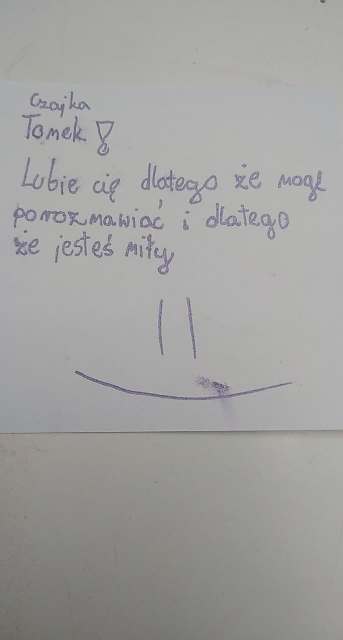 Czajka
Tomek!
Lubie cię dlatego że mogę
porozmawiać i dlatego
że jesteś miły